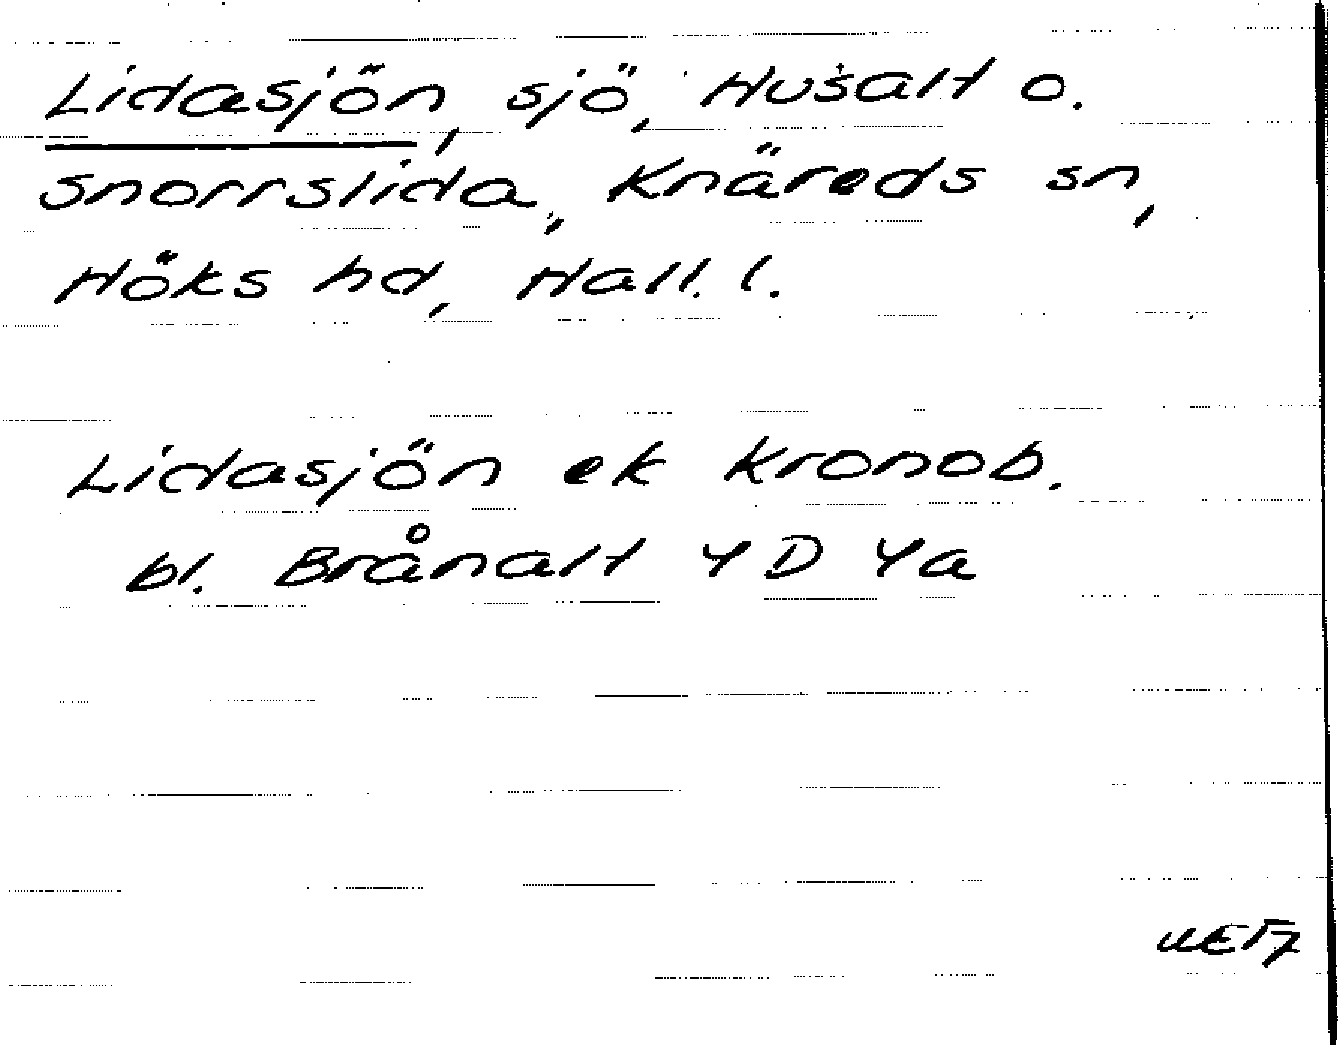 Lidasjön, sjö, Husalt o.
Snorrslida, Knäreds sn,
Höks hd, Hall. l.
Lidasjön ek Kronob.
bl. Brånalt 4 D 4a